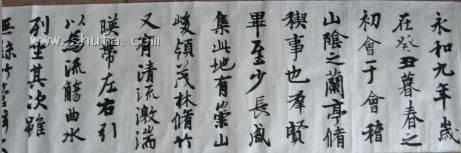 永和九年歲
在癸丑暮春之
初會于會稽
山陰之蘭亭脩
稧事也羣賢
畢至少長咸
集此地有崇山
峻領茂林脩竹
又有清流激湍
暎帶左右引
以為流觴曲水
列坐其次雖
無絲竹管